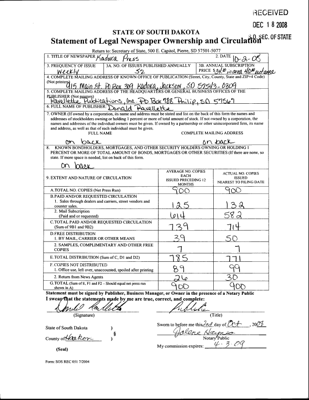 RECEIVED
DEC 18 2008
S.D. SEC. OF STATE
STATE OF SOUTH DAKOTA
Statement of Legal Newspaper Ownership and Circulation
Return to: Secretary of State, 500 E. Capitol, Pierre, SD 57501-5077
1. TITLE OF NEWSPAPER Kadoka Press
2. DATE 10-2-08
3. FREQUENCY OF ISSUE
weekly
3A. NO. OF ISSUES PUBLISHED ANNUALLY
52
3B. ANNUAL SUBSCRIPTION
PRICE
4. COMPLETE MAILING ADDRESS OF KNOWN OFFICE OF PUBLICATION (Street, City, County, State and ZIP+4 Code)
(Not printers)
PO Box 309 Kadoka, Jackson, SD 57543-0309
5. COMPLETE MAILING ADDRESS OF THE HEADQUARTERS OR GENERAL BUSINESS OFFICES OF THE
PUBLISHER (Not printers)
Ravellette Publications, Inc. PO Box 788 Philip, SD 57567
6. FULL NAME OF PUBLISHER: Donald Ravellette
7. OWNER (If owned by a corporation, its name and address must be stated and also
FULL NAME
COMPLETE MAILING ADDRESS
on back
on back
8. KNOWN BONDHOLDERS, MORTGAGEES, AND OTHER SECURITY HOLDERS OWNING OR HOLDING 1
PERCENT OR MORE OF TOTAL AMOUNT OF BONDS, MORTGAGES OR OTHER SECURITIES (If there are none, so
state. If more space is needed, list on back of this form.
on back
9. EXTENT AND NATURE OF CIRCULATION
AVERAGE NO. COPIES
EACH
ISSUES PRECEDING 12
MONTHS
ACTUAL NO. COPIES
ISSUED
NEAREST TO FILING DATE
A. TOTAL NO. COPIES (Net Press Run)
900
900
B. PAID AND/OR REQUESTED CIRCULATION
1. Sales through dealers and carriers, street vendors and
counter sales.
125
132
2. Mail Subscription
(Paid and or requested)
614
582
C. TOTAL PAID AND/OR REQUESTED CIRCULATION
(Sum of 9B1 and 9B2)
739
714
D. FREE DISTRIBUTION
1. BY MAIL, CARRIER OR OTHER MEANS
39
50
2. SAMPLES, COMPLIMENTARY AND OTHER FREE
COPIES
7
7
E. TOTAL DISTRIBUTION (Sum of C, D1 and D2)
785
771
F. COPIES NOT DISTRIBUTED
1. Office use, left over, unaccounted, spoiled after printing
89
99
2. Return from News Agents
26
30
G. TOTAL (Sum of E, F1 and F2 - Should equal net press run
shown in A)
900
900
Statement must be signed by Publisher, Business Manager, or Owner in the presence of a Notary Public
I swear that the statements made by me are true, correct, and complete:
Publisher
(Signature)
(Title)
State of South Dakota
County of Haakon
(Seal)
Sworn to before me this 2nd day of Oct, 2008
Notary Public
My commission expires: 4-3-09
Form: SOS REC 051 7/2004